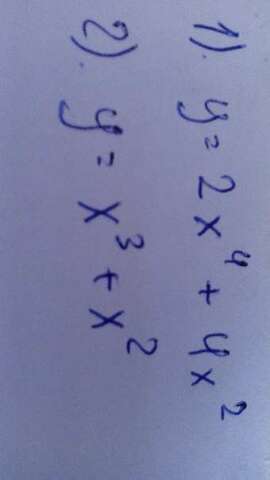 1). y = 2x⁴ + 4x²
2). y = x³ + x²